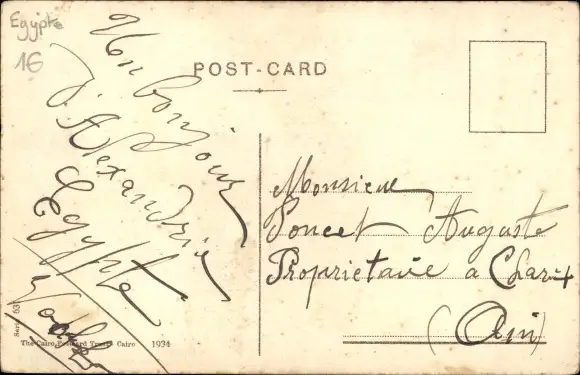 Egypte
16
POST-CARD
Un bonjour
d'Alexandrie
Egypte
Monsieur
Poncet Auguste
Proprietaire a
(Ain)
Serie 631
The Cairo Postcard Trust, Cairo 1934